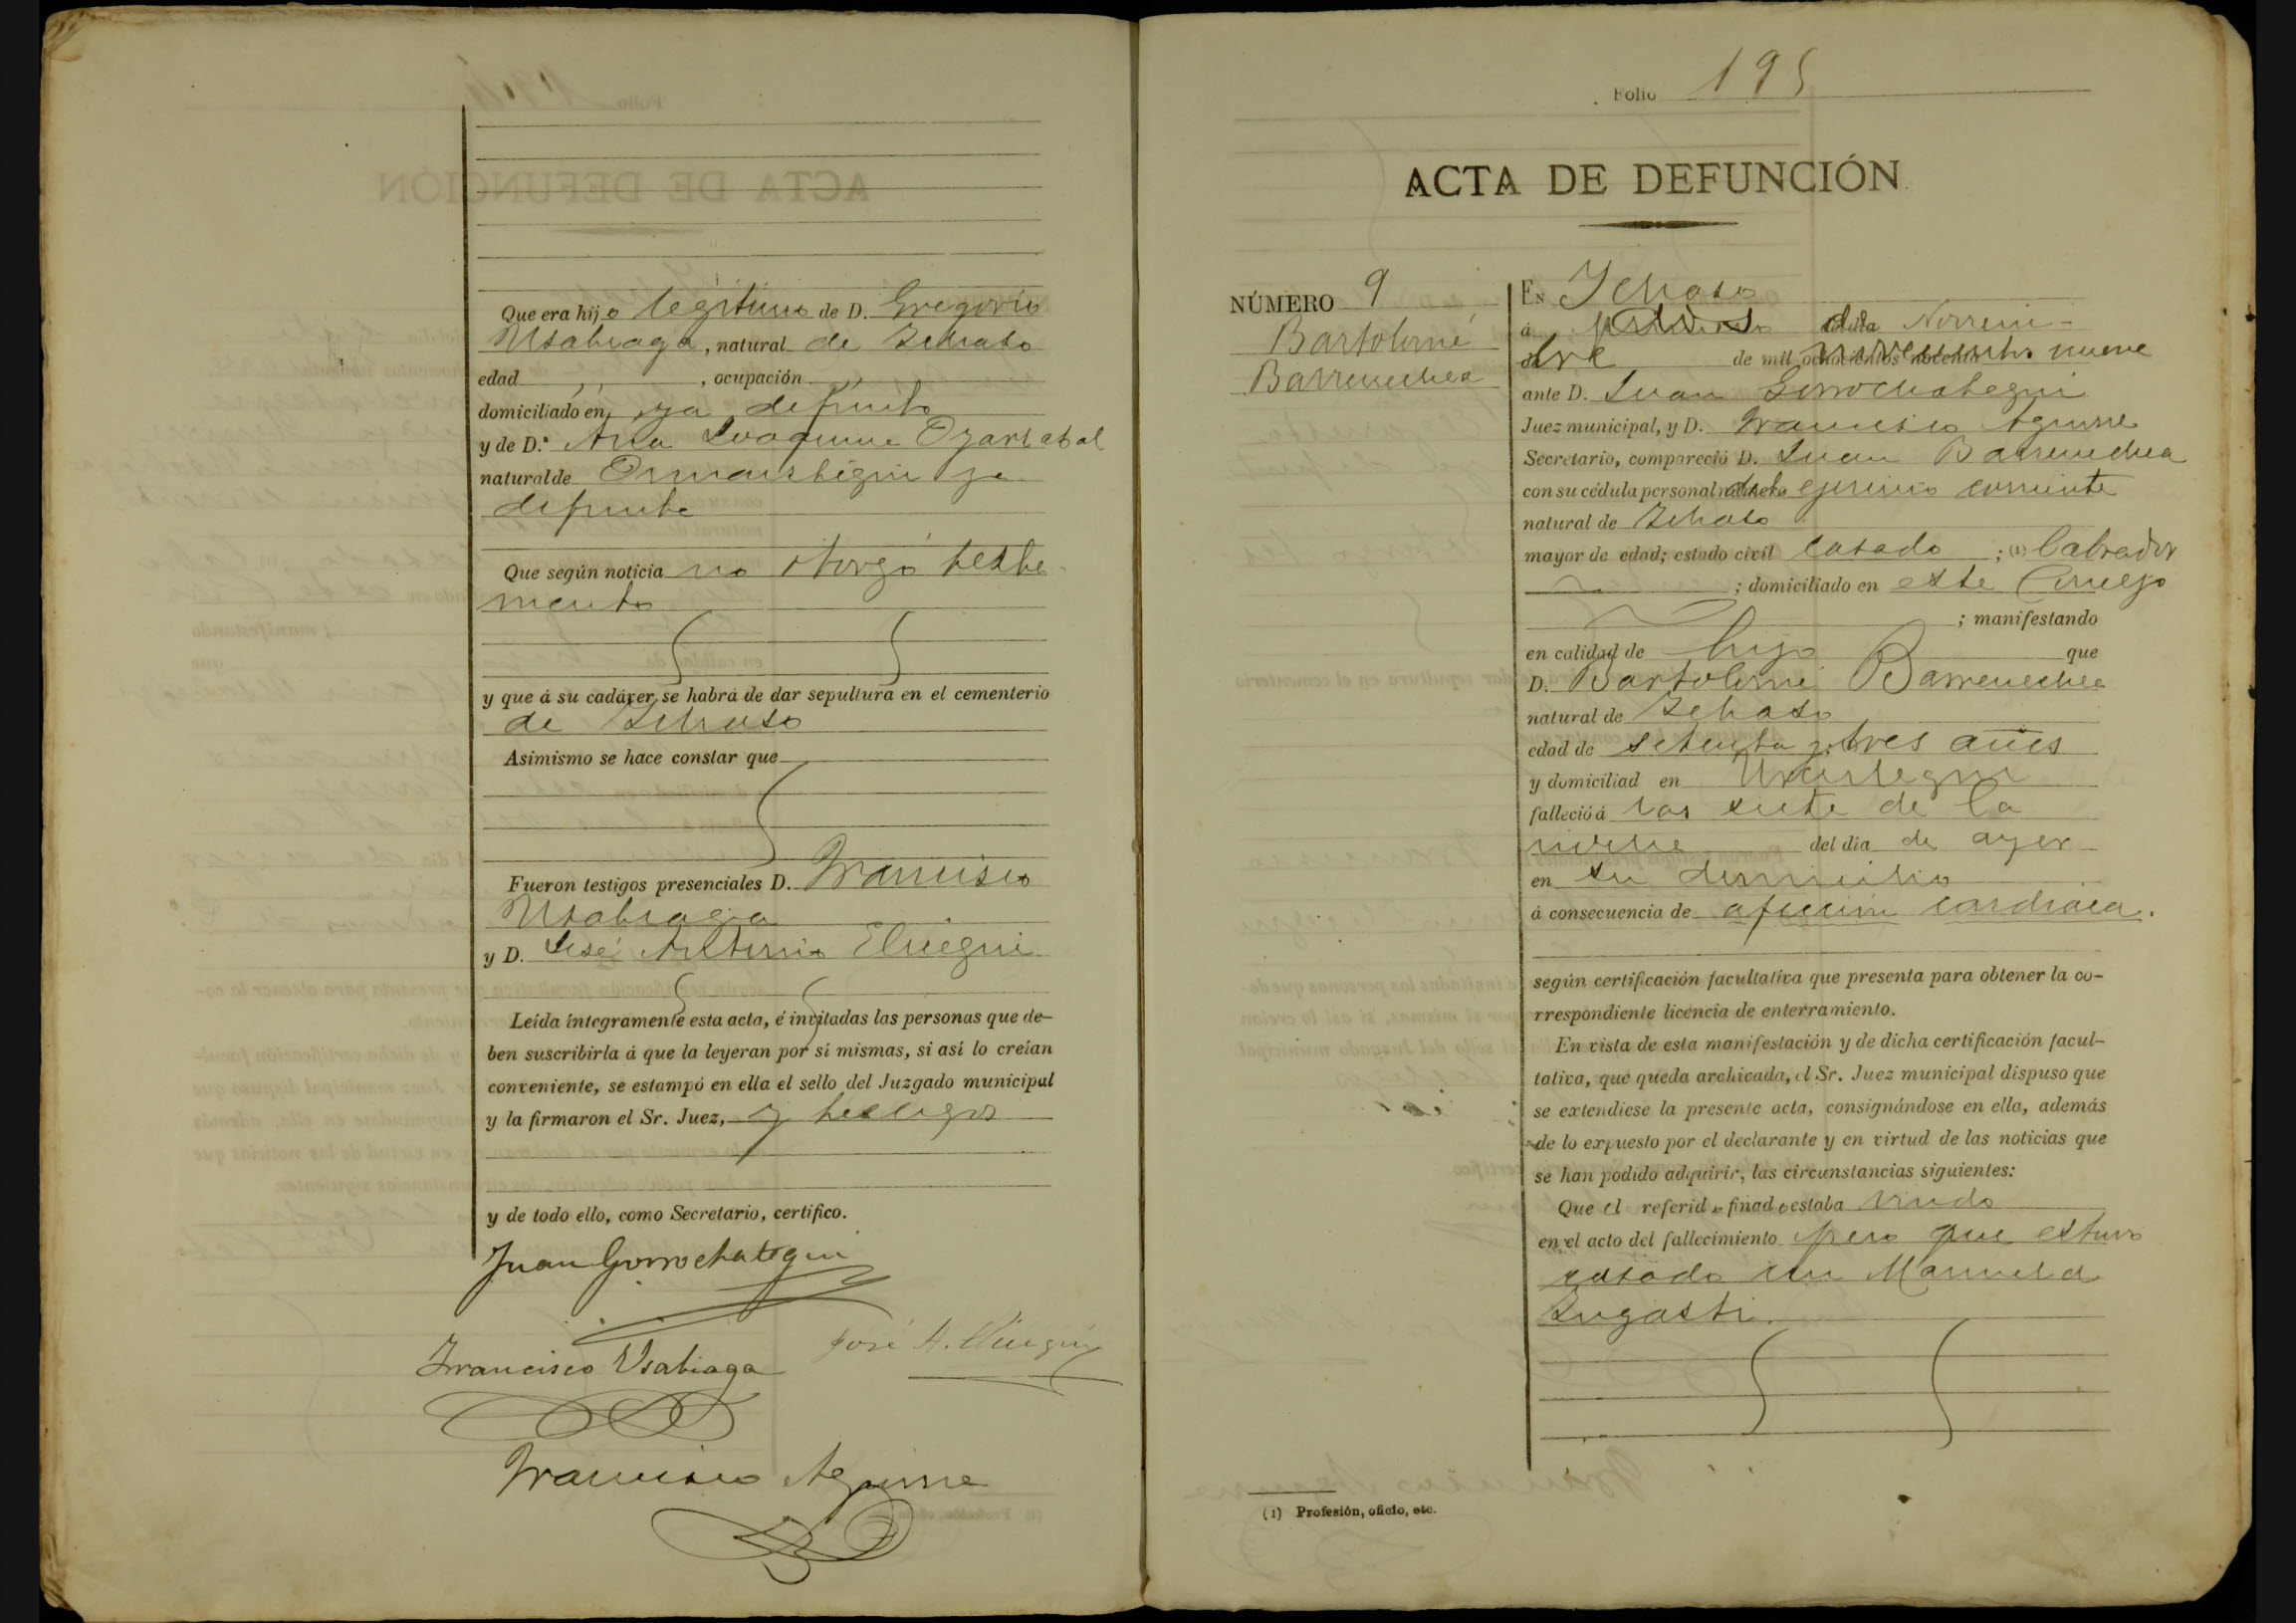 Que era hijo legitimo de D. Gregorio
Usabiaga, natural de Ichaso
edad ,, , ocupación ,,
domiciliado en ya difunto
y de D.ª Ana Joaquina Ozartabal
natural de Ormaiztegui ya
difunta
Que según noticia no otorgó testa
mento
y que á su cadáver se habrá de dar sepultura en el cementerio
de Ichaso
Asimismo se hace constar que
Fueron testigos presenciales D. Francisco
Usabiaga
y D. José Antonio Elicegui
Leída íntegramente esta acta, é invitadas las personas que de-
ben suscribirla á que la leyeran por sí mismas, si así lo creían
conveniente, se estampó en ella el sello del Juzgado municipal
y la firmaron el Sr. Juez, y testigos
y de todo ello, como Secretario, certifico.
Juan Gorrochategui
José A. Elicegui
Francisco Usabiaga
Francisco Aguirre
Folio 195
ACTA DE DEFUNCIÓN
NÚMERO 9
Bartolomé
Barrenechea
En Ichaso
á de Noviem-
bre de mil novecientos nueve
ante D. Juan Gorrochategui
Juez municipal, y D. Francisco Aguirre
Secretario, compareció D. Juan Barrenechea
con su cédula personal del ejercicio corriente
natural de Ichaso
mayor de edad; estado civil casado ; (1) labrador
; domiciliado en este Concejo
; manifestando
en calidad de hijo que
D. Bartolomé Barrenechea
natural de Ichaso
edad de setenta y tres años
y domiciliad en
falleció á las siete de la
noche del día de ayer
en su domicilio
á consecuencia de afección cardiaca.
según certificación facultativa que presenta para obtener la co-
rrespondiente licencia de enterramiento.
En vista de esta manifestación y de dicha certificación facul-
tativa, que queda archivada, el Sr. Juez municipal dispuso que
se extendiese la presente acta, consignándose en ella, además
de lo expuesto por el declarante y en virtud de las noticias que
se han podido adquirir, las circunstancias siguientes:
Que el referido finado estaba viudo
en el acto del fallecimiento pero que estuvo
casado con Manuela
Lugasti.
(1) Profesión, oficio, etc.